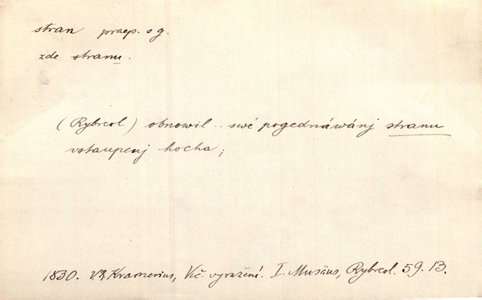 stran praep. s g.
zde stranu.
(Rybrcol) obnowil .. swé pogednáwánj stranu
wstaupenj hocha;
1830. Kramerius, Vič. vyražení. I. Musäus, Rybrcol. 59. B.